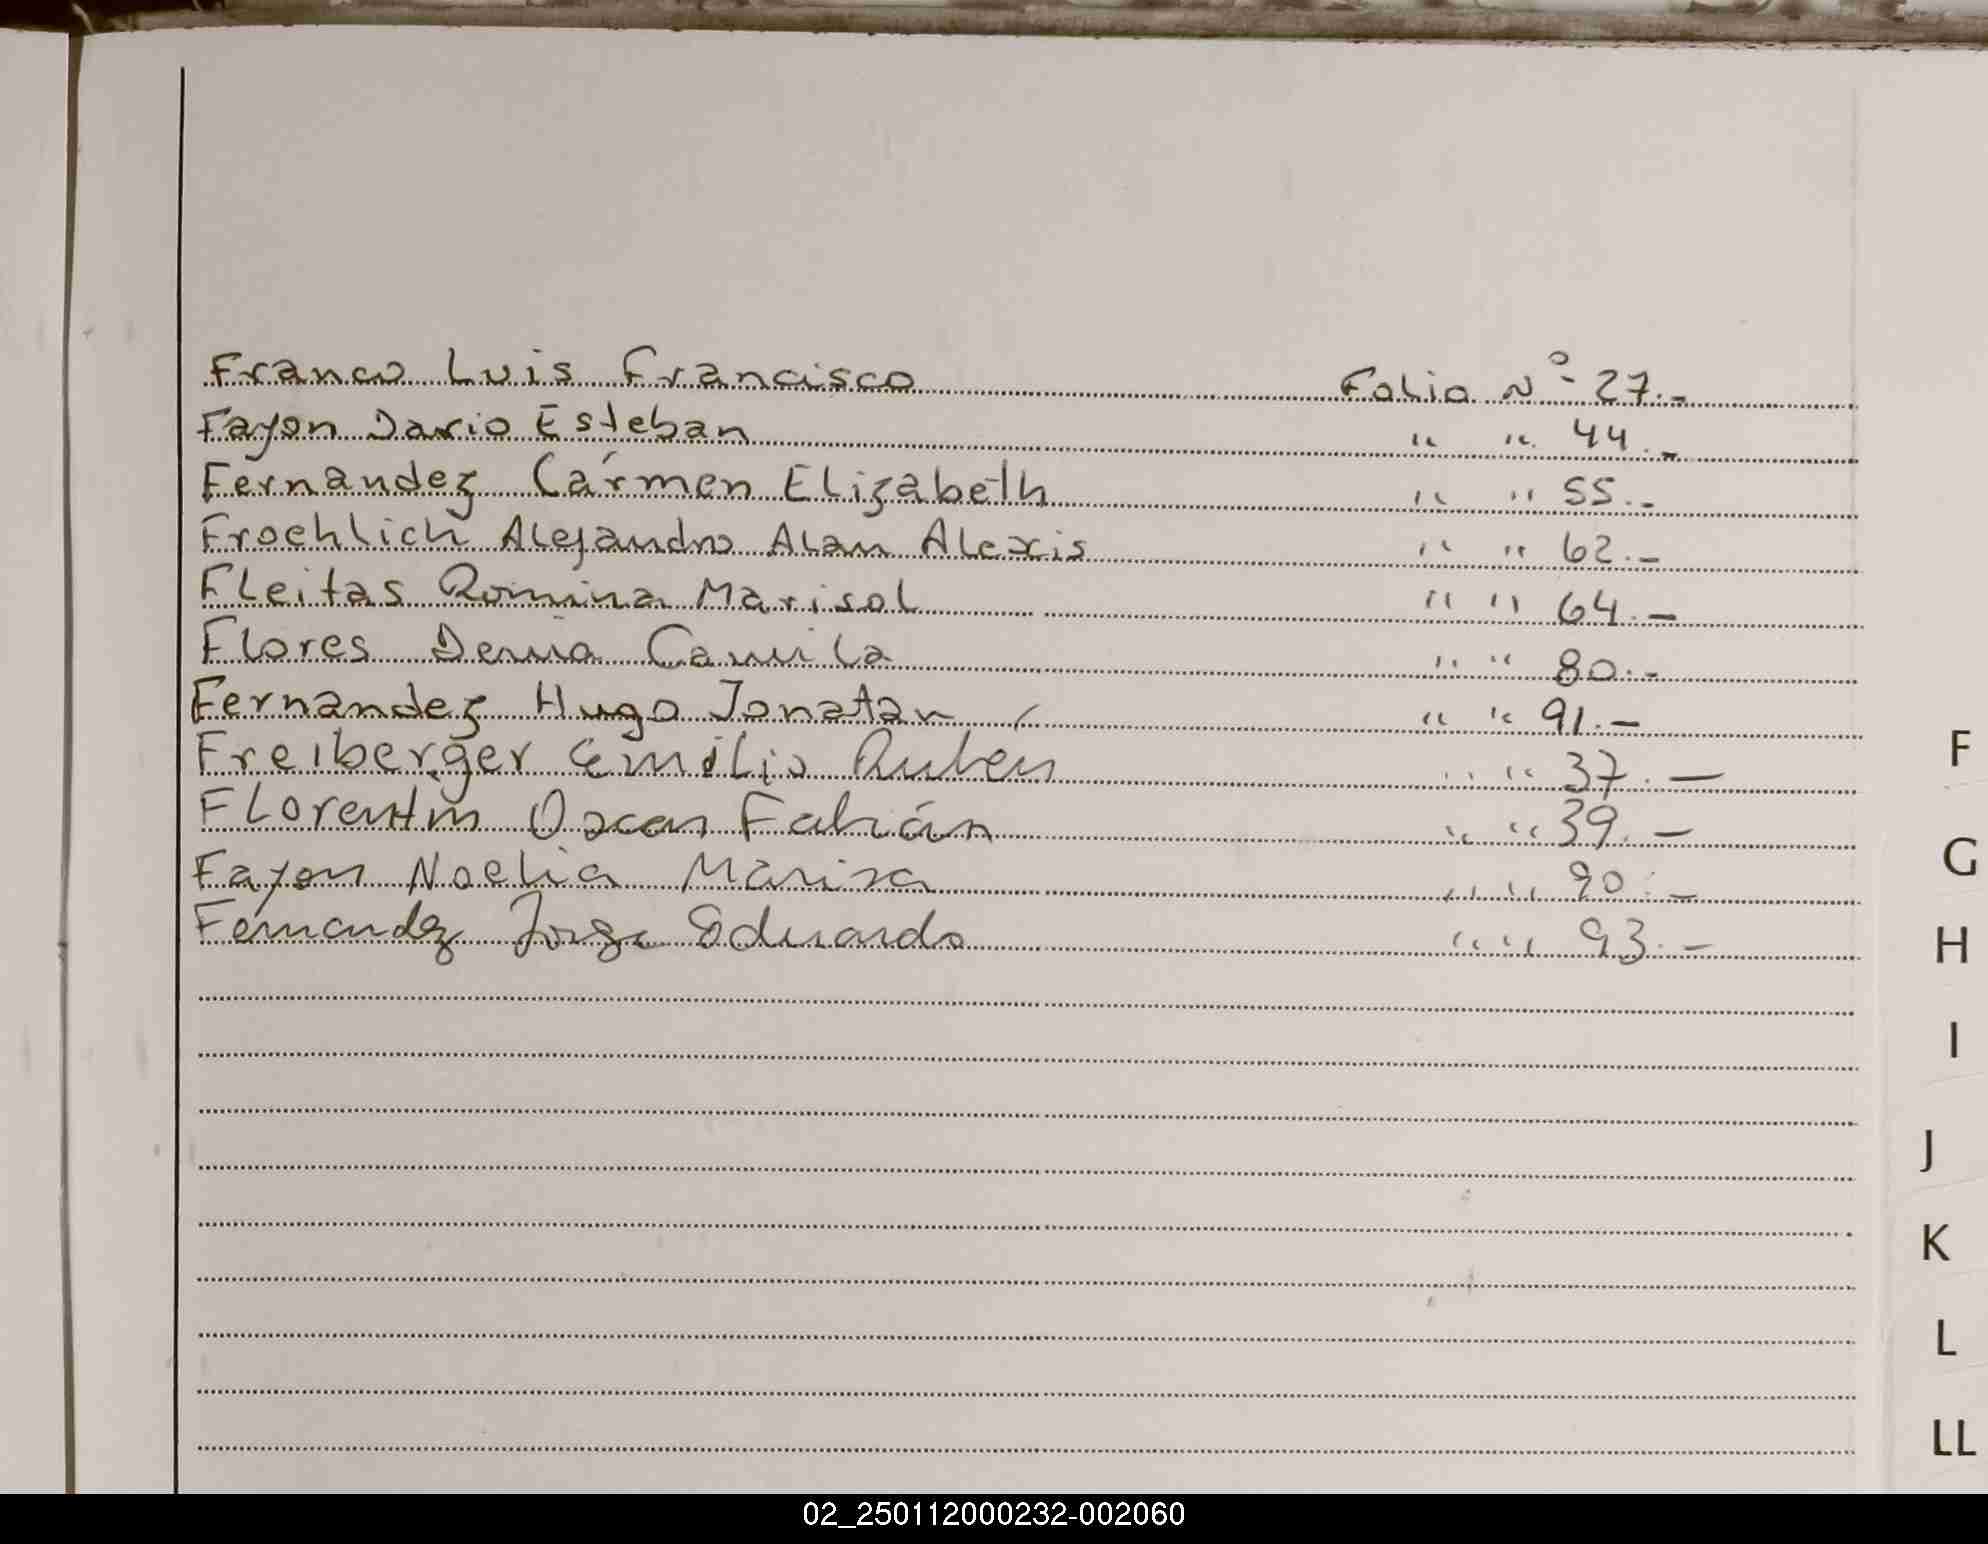 Franco Luis Francisco Folio Nº 27.-
Fayon Dario Esteban " " 44.-
Fernandez Cármen Elizabeth " " 55.-
Froehlich Alejandro Alan Alexis " " 62.-
Fleitas Romina Marisol " " 64.-
Flores Camila " " 80.-
Fernandez Hugo Jonatan " " 91.-
Freiberger Emilio Ruben " " 37.-
Florentin Oscar Fabián " " 39.-
Fayon Noelia Marisa " " 90.-
Fernandez Jorge Eduardo " " 93.-
F
G
H
I
J
K
L
LL
02_250112000232-002060